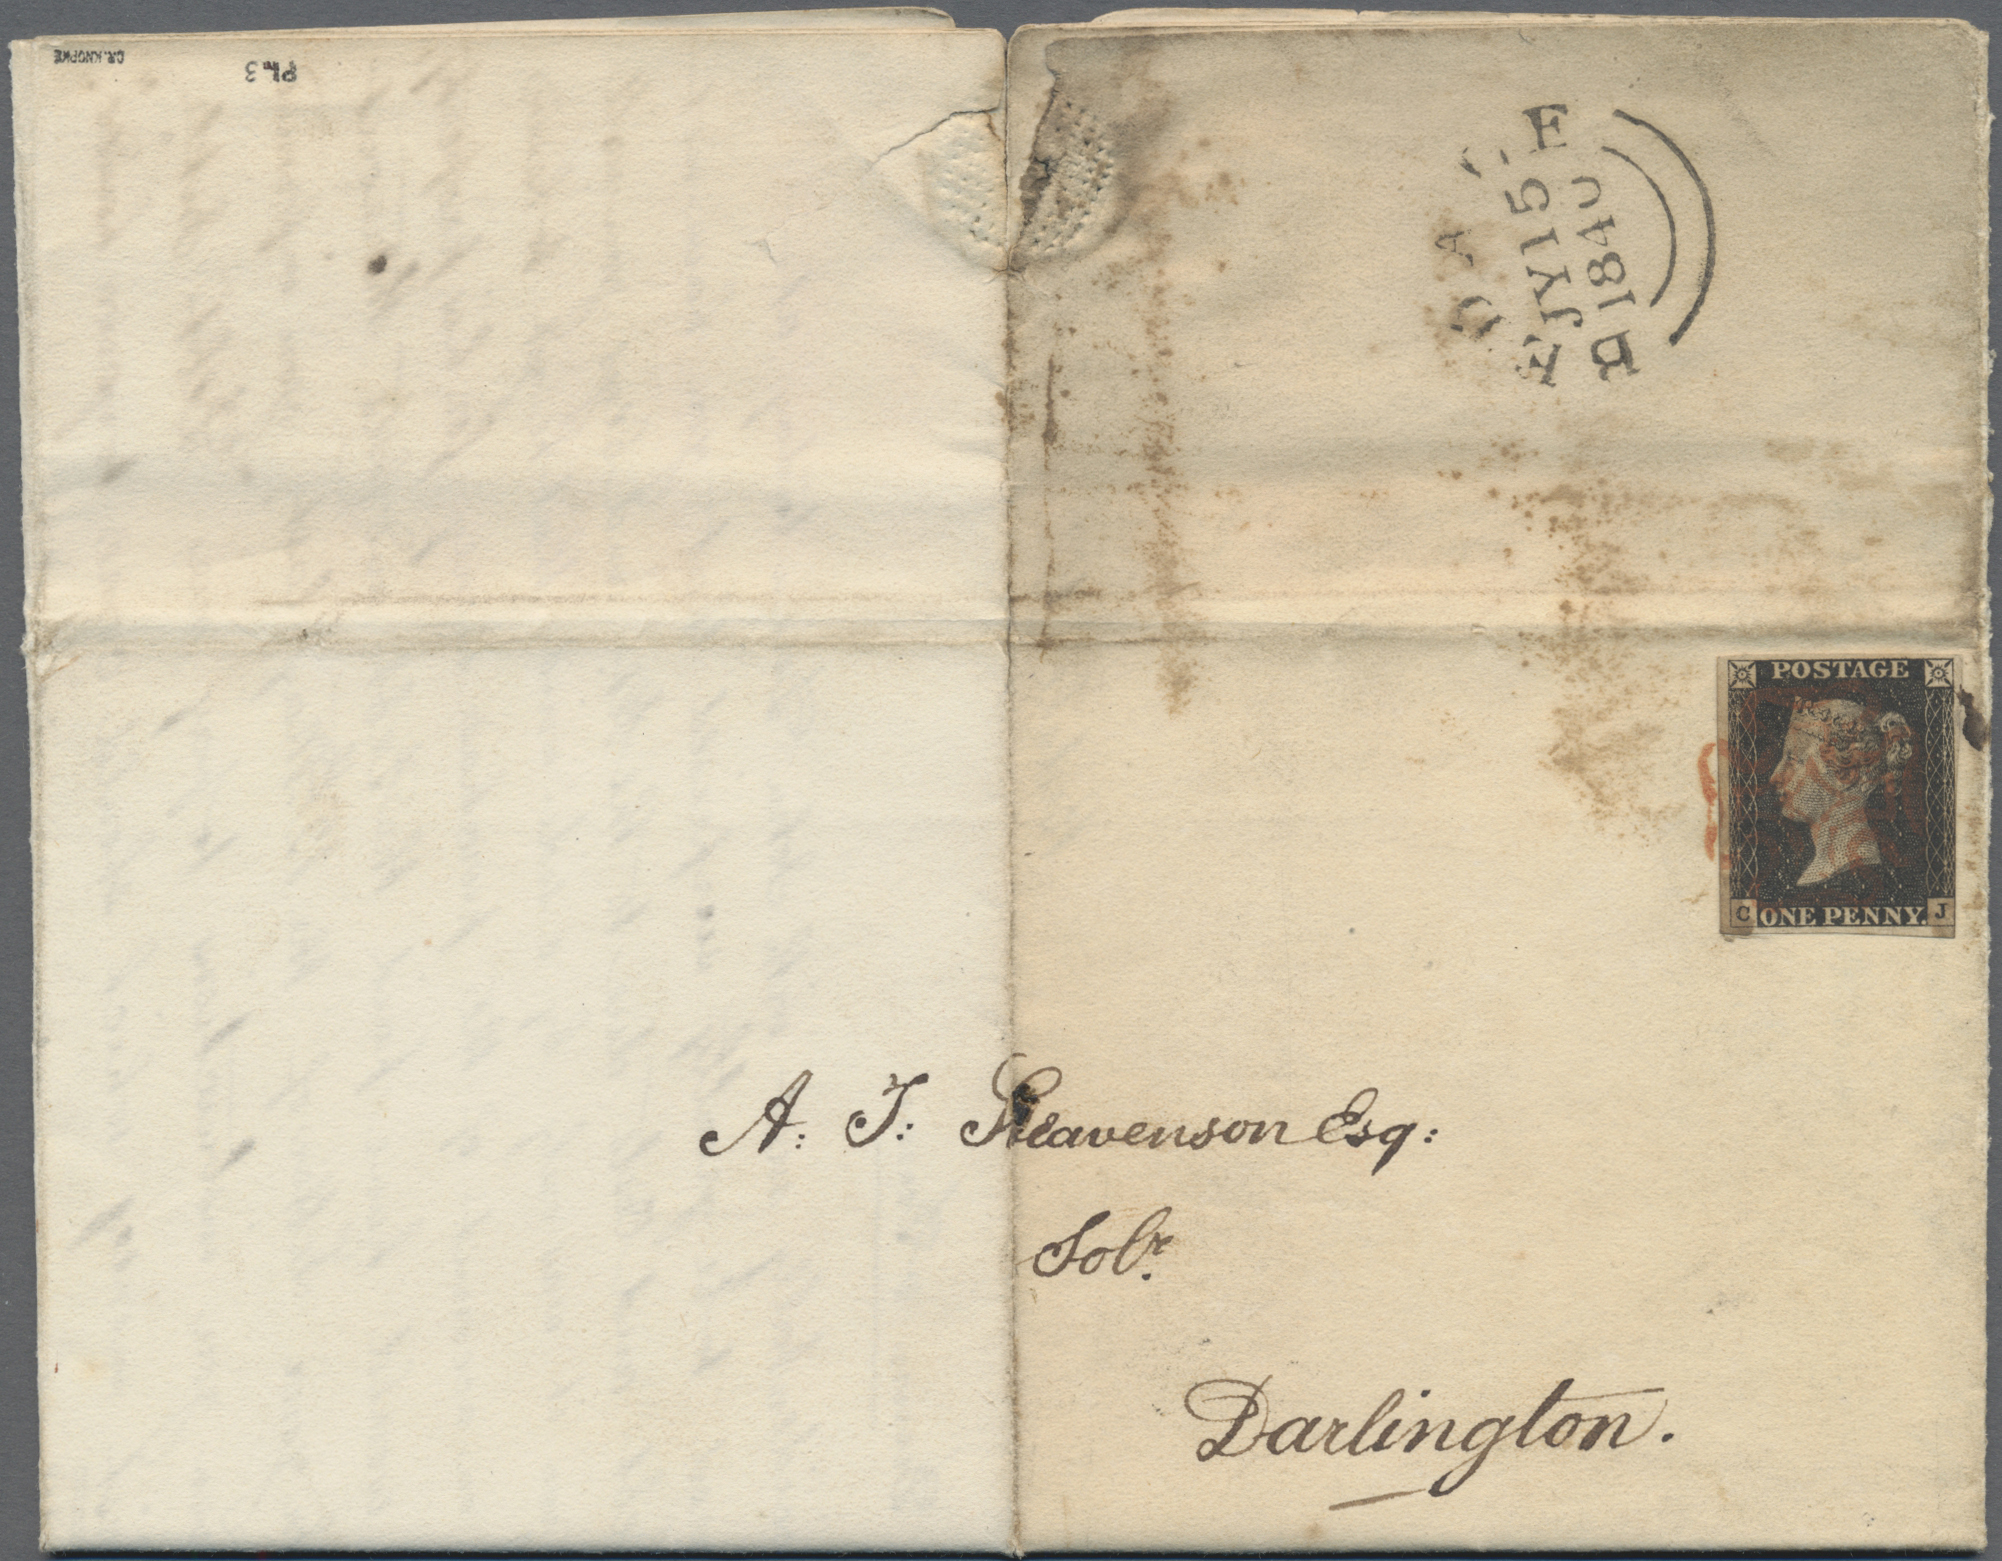 DR. KNOPKE
Pl. 3
E
JY15
1840
POSTAGE
C ONE PENNY. J
A: T: Steavenson Esq:
Solr.
Darlington.